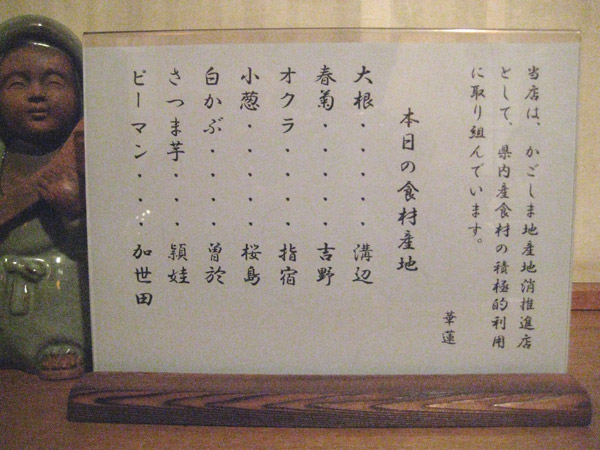 当店は、かごしま地産地消推進店
として、県内産食材の積極的利用
に取り組んでいます。
華蓮
本日の食材産地
大根・・・・・溝辺
春菊・・・・・吉野
オクラ・・・・指宿
小葱・・・・・桜島
白かぶ・・・・曽於
さつま芋・・・頴娃
ピーマン・・・加世田